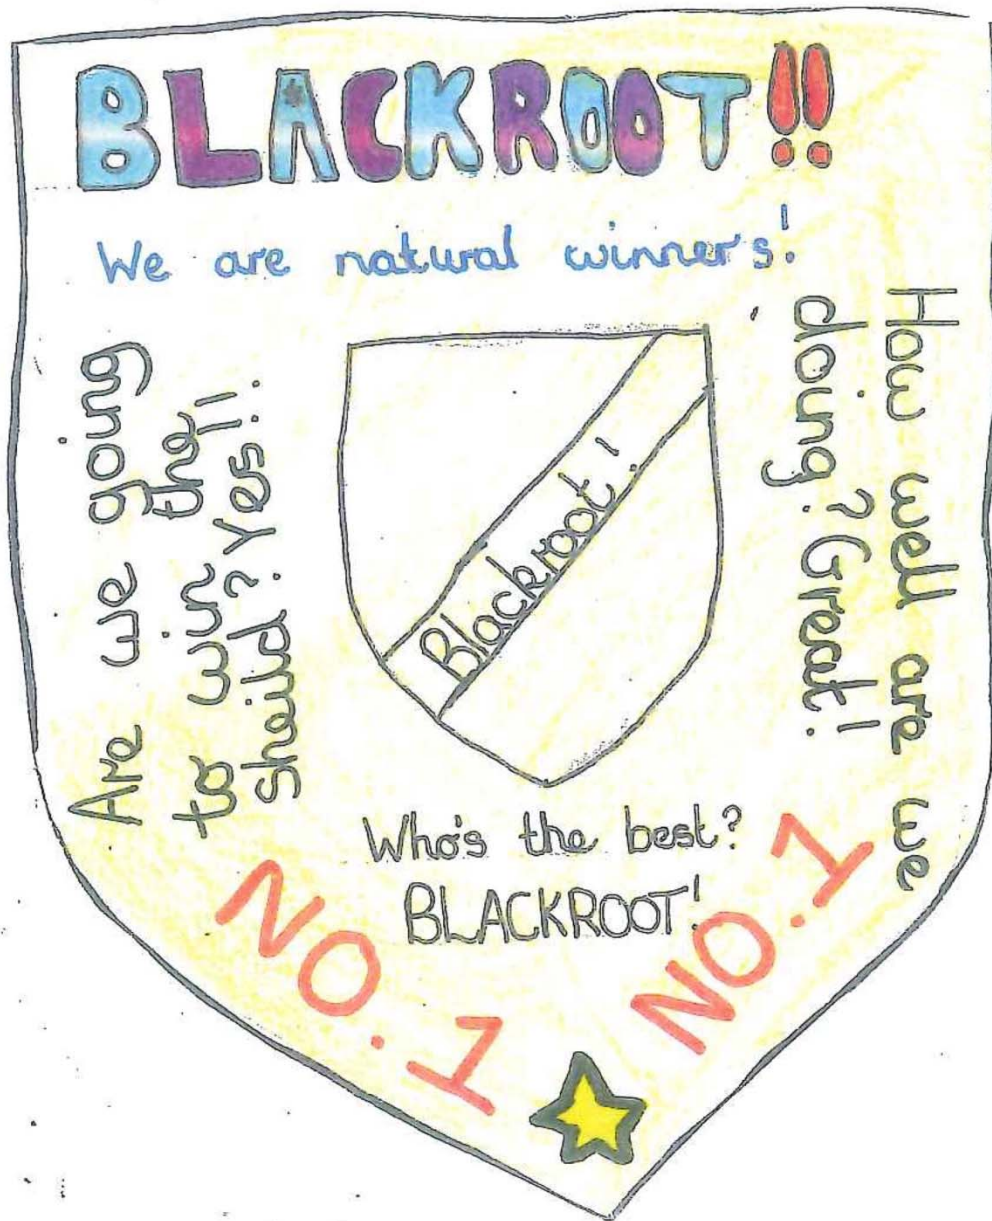 BLACKROOT!!
We are natural winner's!
Are we going
to win the
sheild? Yes!!
Blackroot!
How well are we
doing? Great!
Who's the best?
BLACKROOT!
NO.1
NO.1